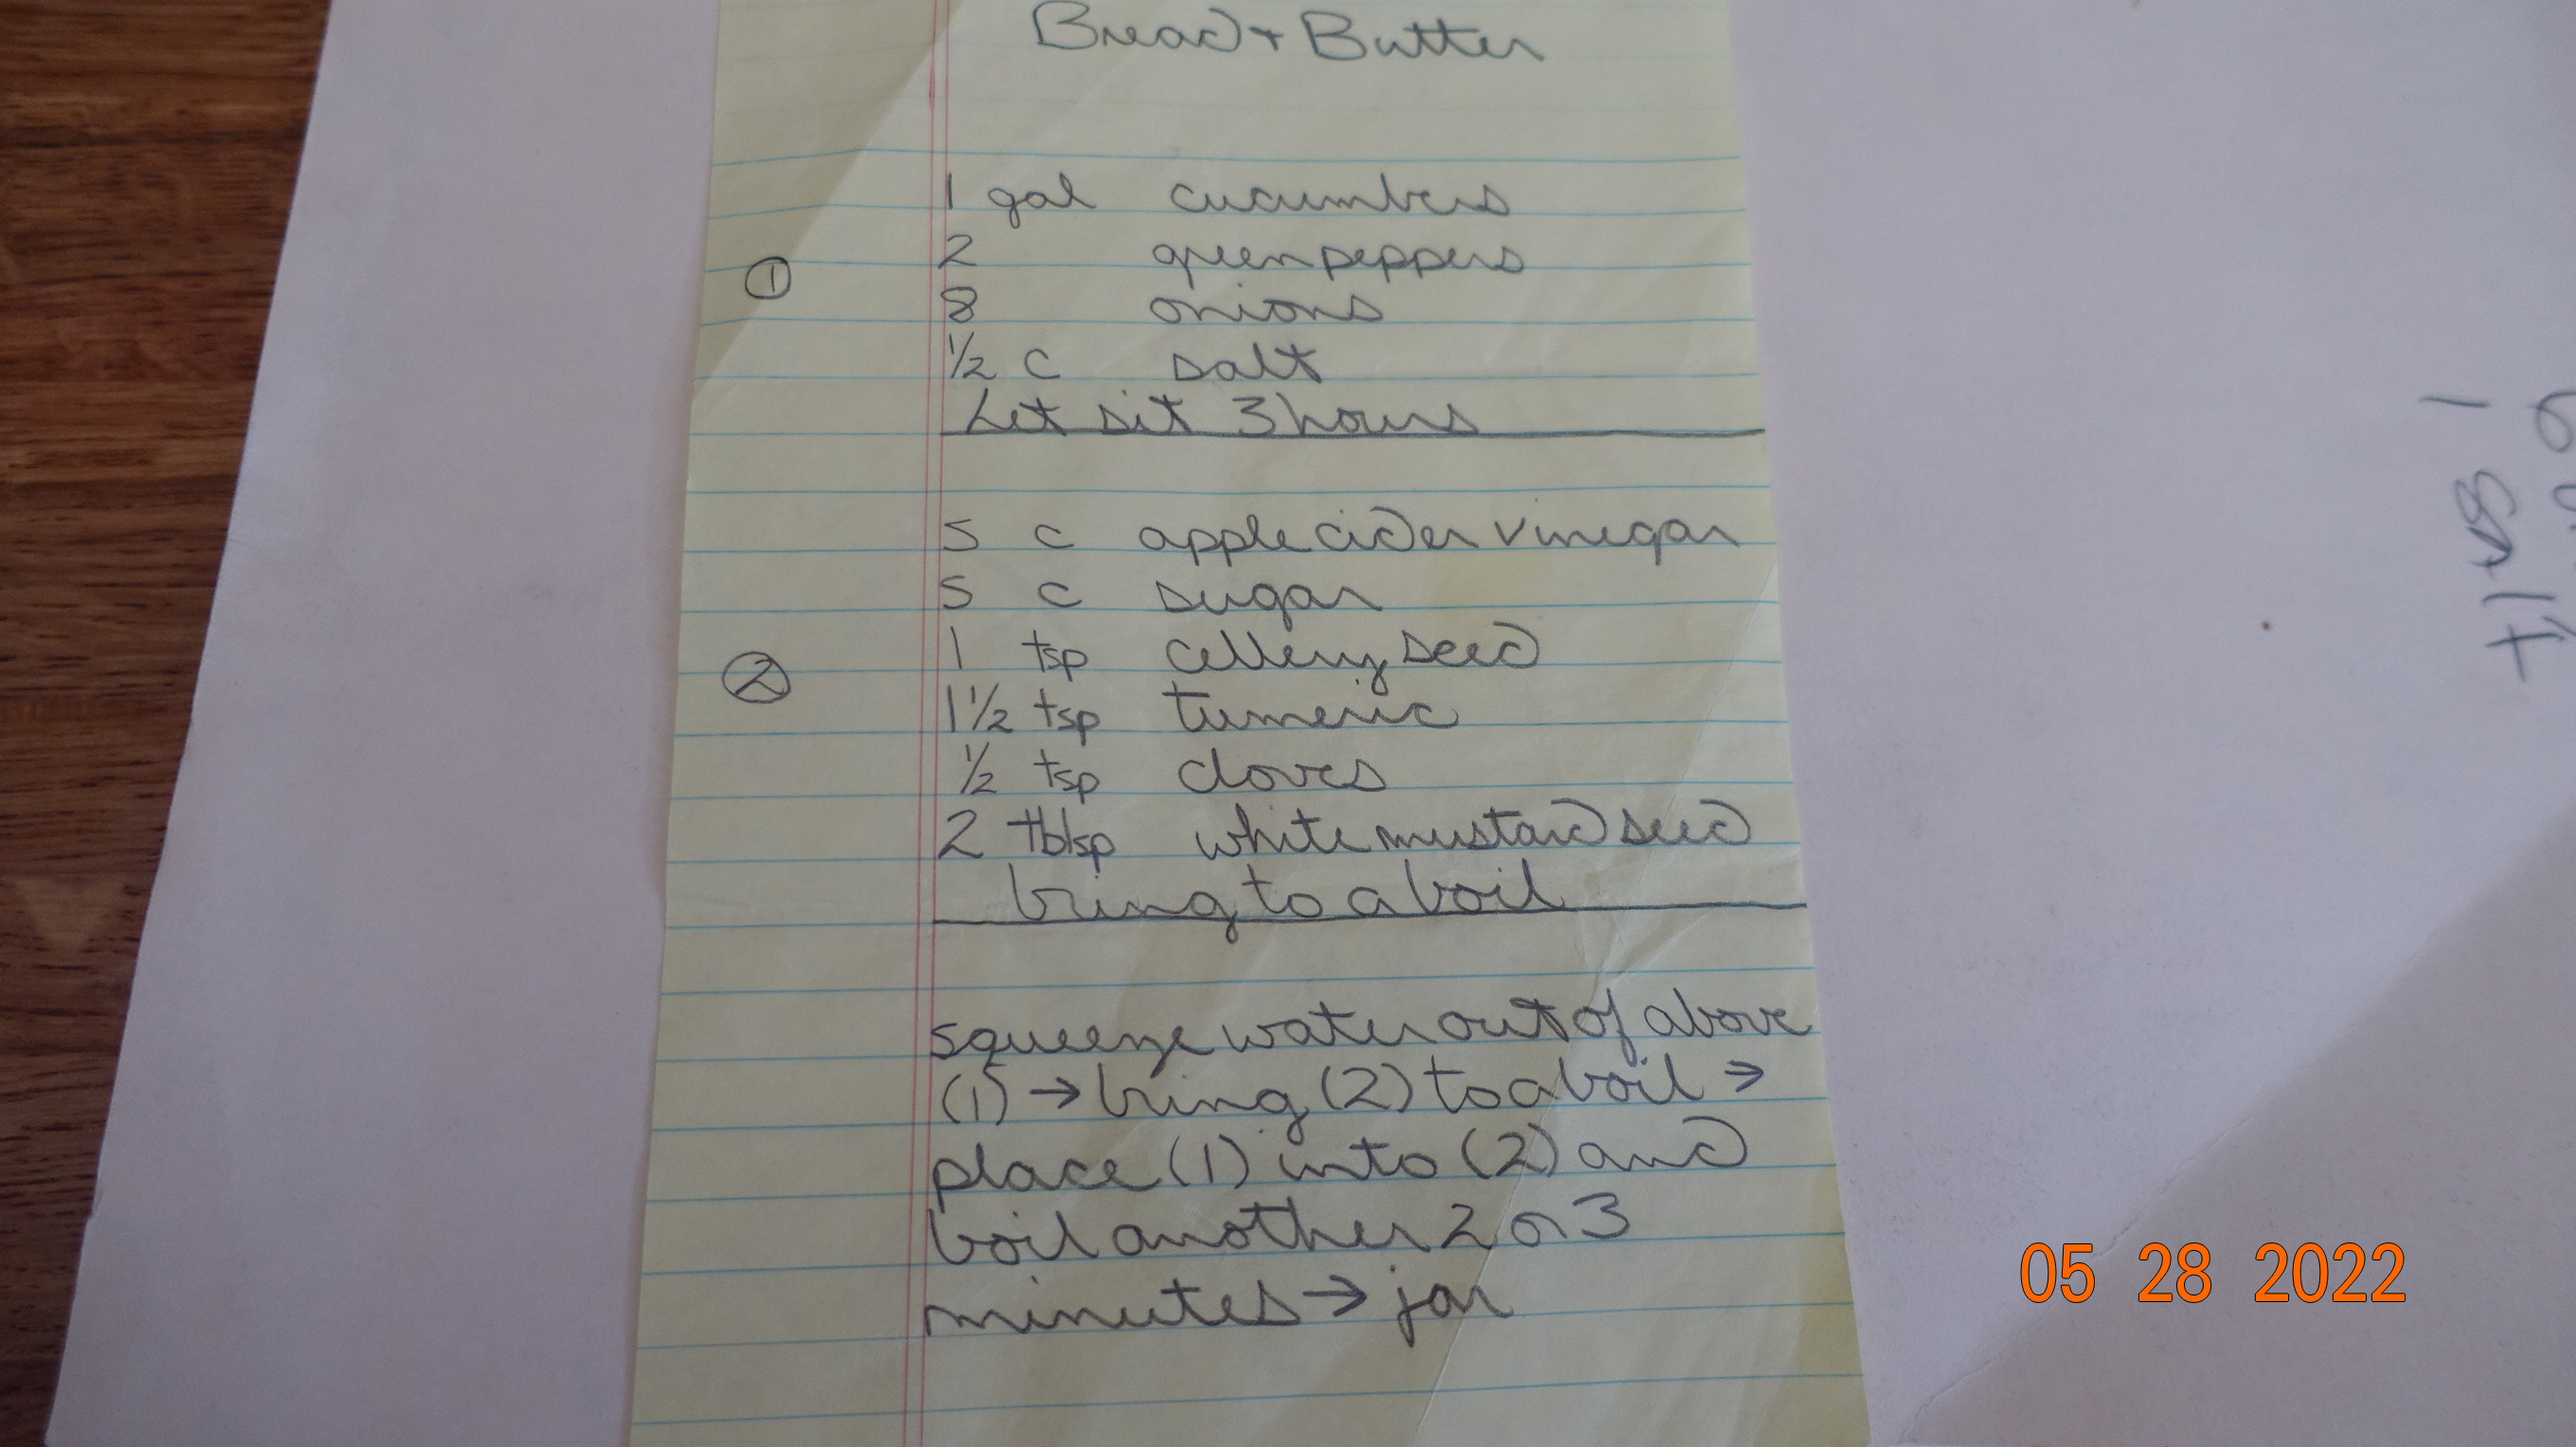 Bread + Butter
1 gal cucumbers
2 green peppers
①
8 onions
1/2 c salt
Let sit 3 hours
5 c apple cider vinegar
5 c sugar
1 tsp cellery seed
②
1 1/2 tsp tumeric
1/2 tsp cloves
2 tblsp white mustard seed
bring to a boil
squeeze water out of above
(1) → bring (2) to a boil →
place (1) into (2) and
boil another 2 or 3
minutes → jar
05 28 2022